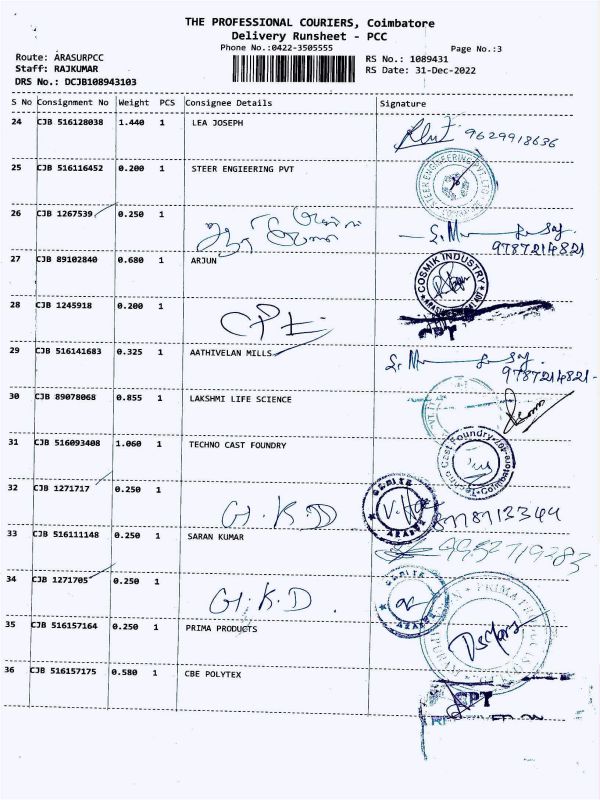 THE PROFESSIONAL COURIERS, Coimbatore
Delivery Runsheet - PCC
Phone No.:0422-3505555
Page No.:3
Route: ARASURPCC
RS No.: 1089431
Staff: RAJKUMAR
RS Date: 31-Dec-2022
DRS No.: DCJB108943103
S No Consignment No Weight PCS Consignee Details Signature
24 CJB 516128038 1.440 1 LEA JOSEPH 9629918636
25 CJB 516116452 0.200 1 STEER ENGIEERING PVT
STEER ENGINEERING PVT LTD
26 CJB 1267539 0.250 1
9787214821
27 CJB 89102840 0.680 1 ARJUN
COSMIK INDUSTRY
28 CJB 1245918 0.200 1
29 CJB 516141683 0.325 1 AATHIVELAN MILLS
9787214821-
30 CJB 89078068 0.855 1 LAKSHMI LIFE SCIENCE
31 CJB 516093408 1.060 1 TECHNO CAST FOUNDRY
Techno Cast Foundry Coimbatore
32 CJB 1271717 0.250 1 G.K.D
33 CJB 516111148 0.250 1 SARAN KUMAR
34 CJB 1271705 0.250 1 G.K.D.
35 CJB 516157164 0.250 1 PRIMA PRODUCTS
36 CJB 516157175 0.580 1 CBE POLYTEX